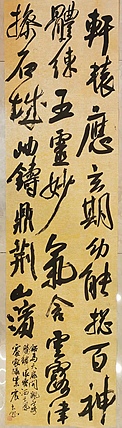 軒轅應玄期幼能總百神
體練五靈妙氣含雲露津
摻石城岫鑄鼎荊山濱